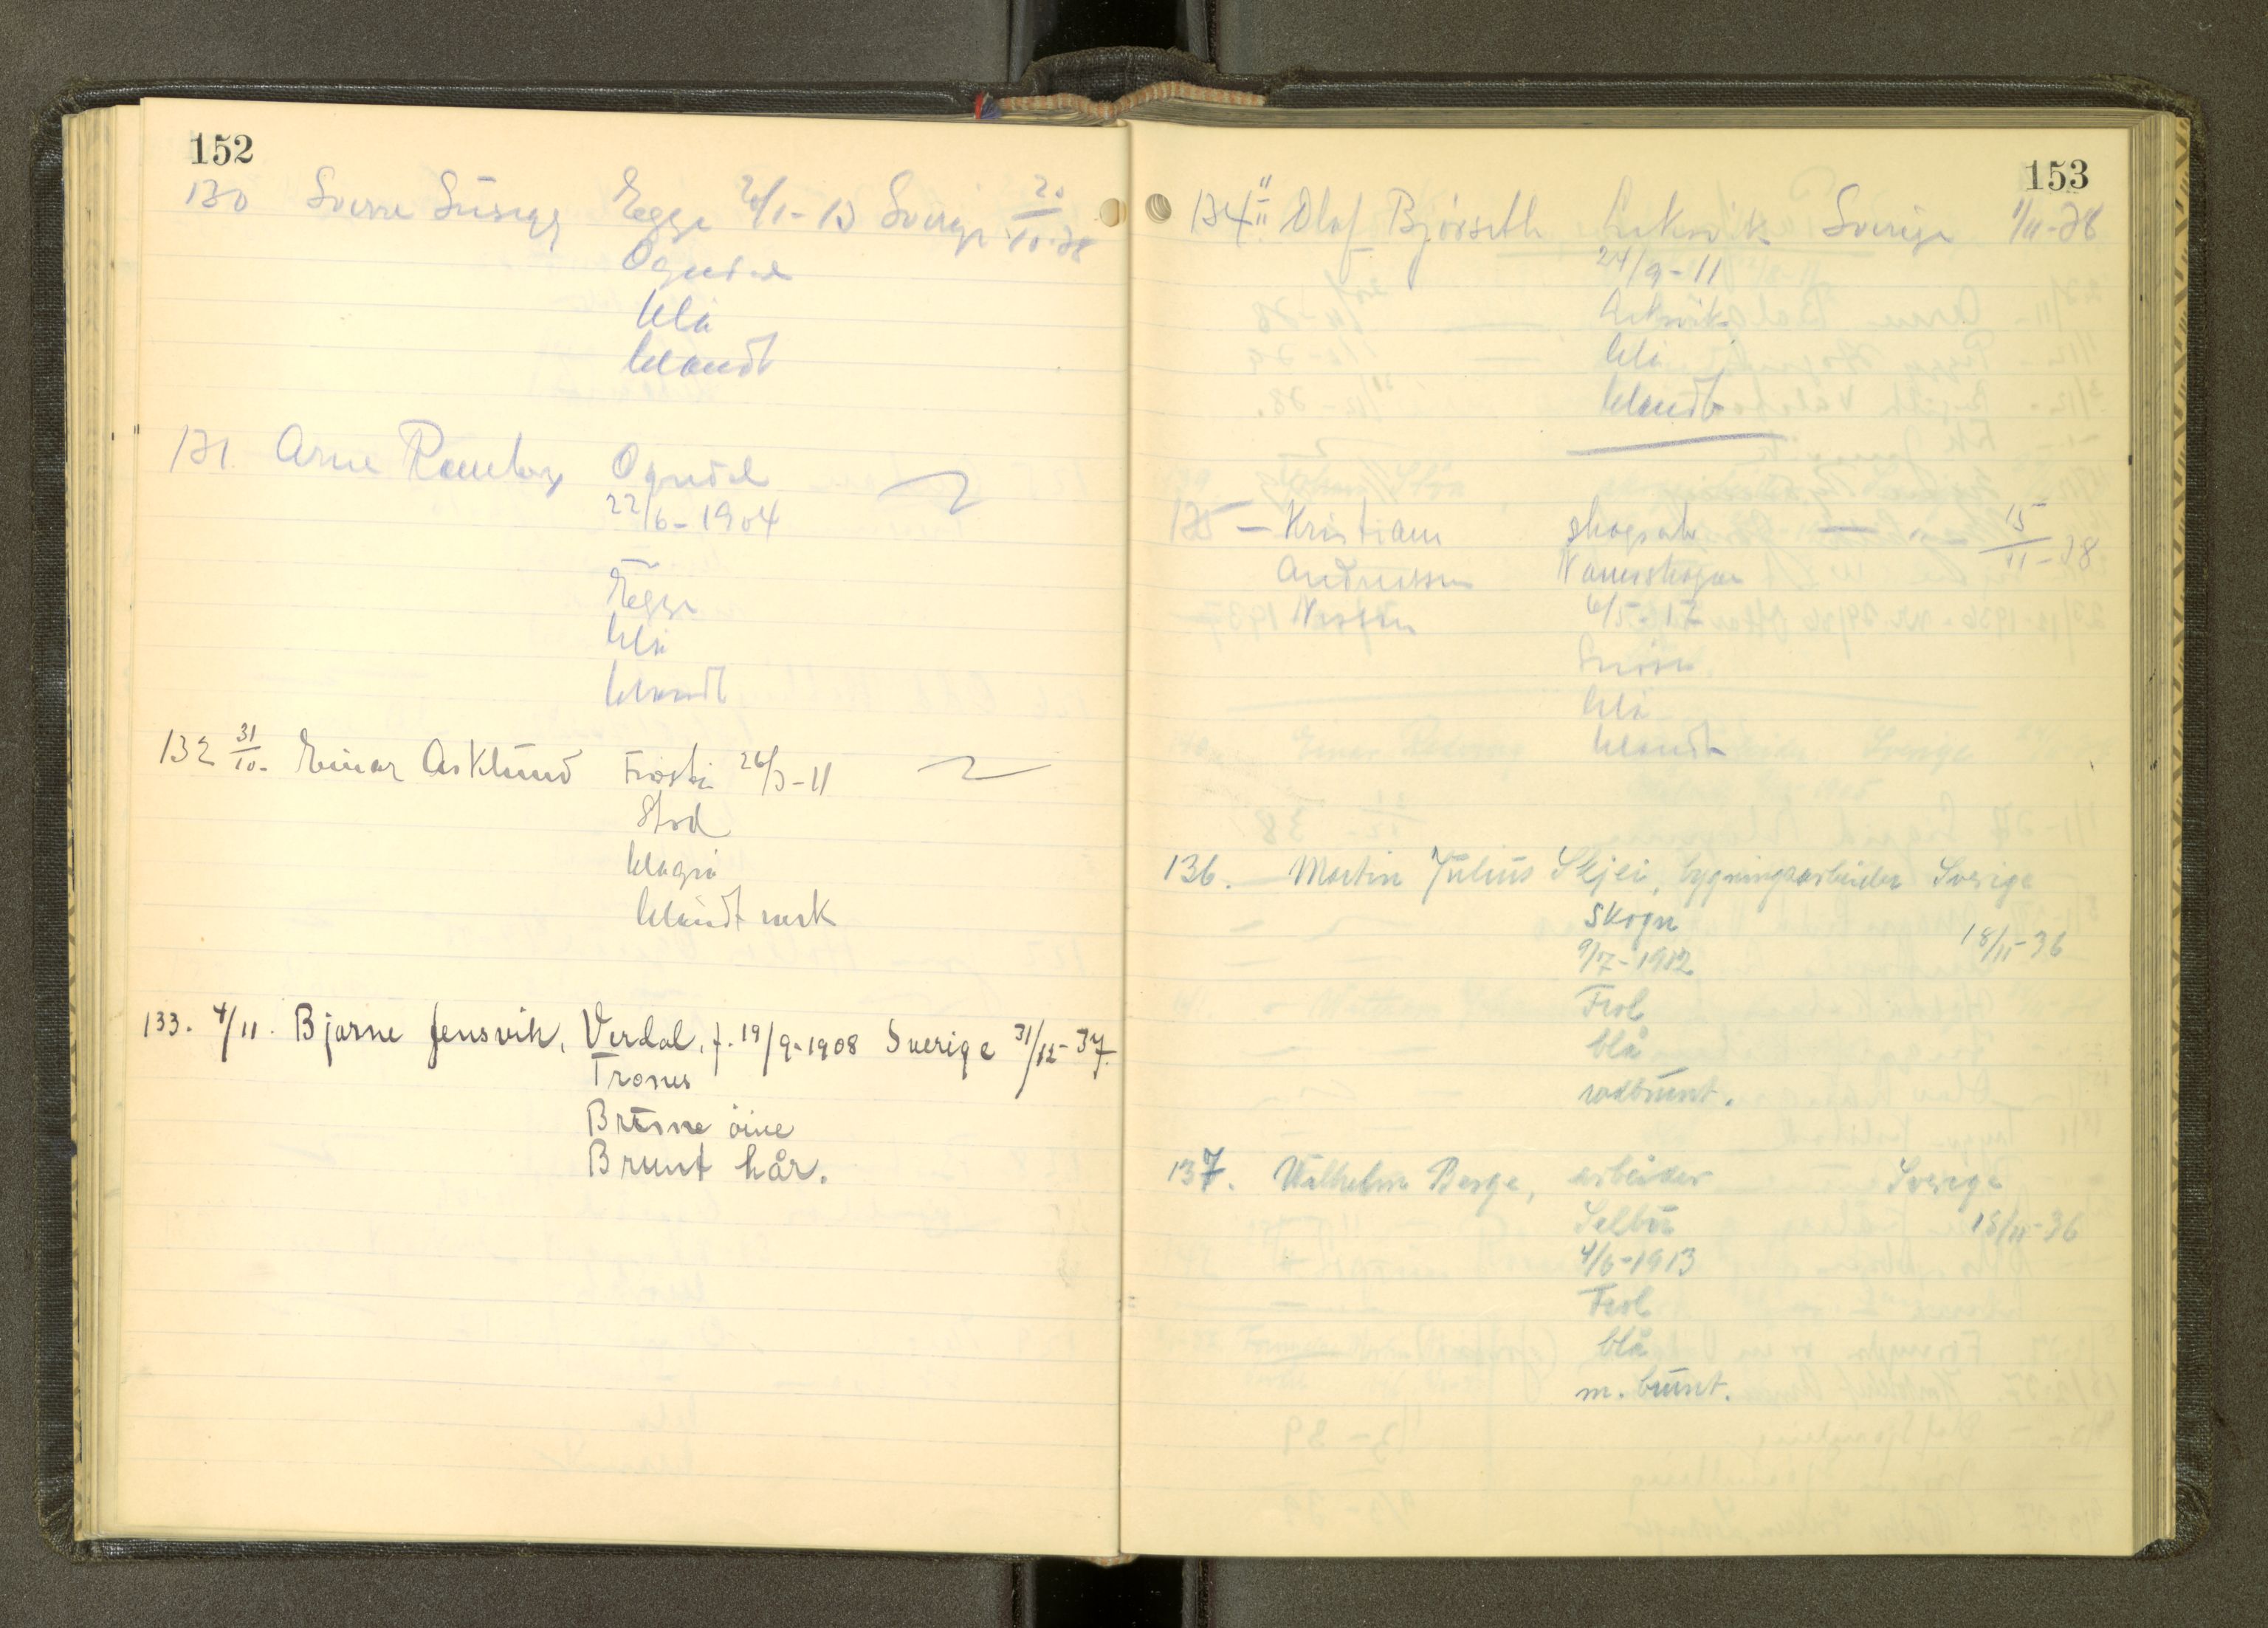 152
130 Sverre Süsegg Egge 2/1-13 Sverige 20/10-38
Ogndal
blå
blandt
131. Arne Ramberg Ogndal
22/6-1904
Egge
blå
blandt
132 31/10- Einar Asklund Frosta 26/3-11
Stod
blagrå
blandt mørk
133. 4/11. Bjarne Jensvik, Verdal, f. 19/9-1908 Sverige 31/12-37.
Trones
Brune öine
Brunt hår.
153
134 Olaf Bjørseth Leksvik Sverige 1/11-38
24/9-11
Leksvik
blå
blandt
135 - Kristian skogsarb — " — 15/11-38
Andreassen Namsskogan
6/5-17
Snåsa
blå
blandt
136. — Martin Julius Skjei, bygningsarbeider Sverige
Skogn
9/7-1912 18/11-36
Frol
blå
rødbrunt.
137. Wilhelm Berge, arbeider Sverige
Selbu 18/11-36
4/6-1913
Frol
blå
m. brunt.